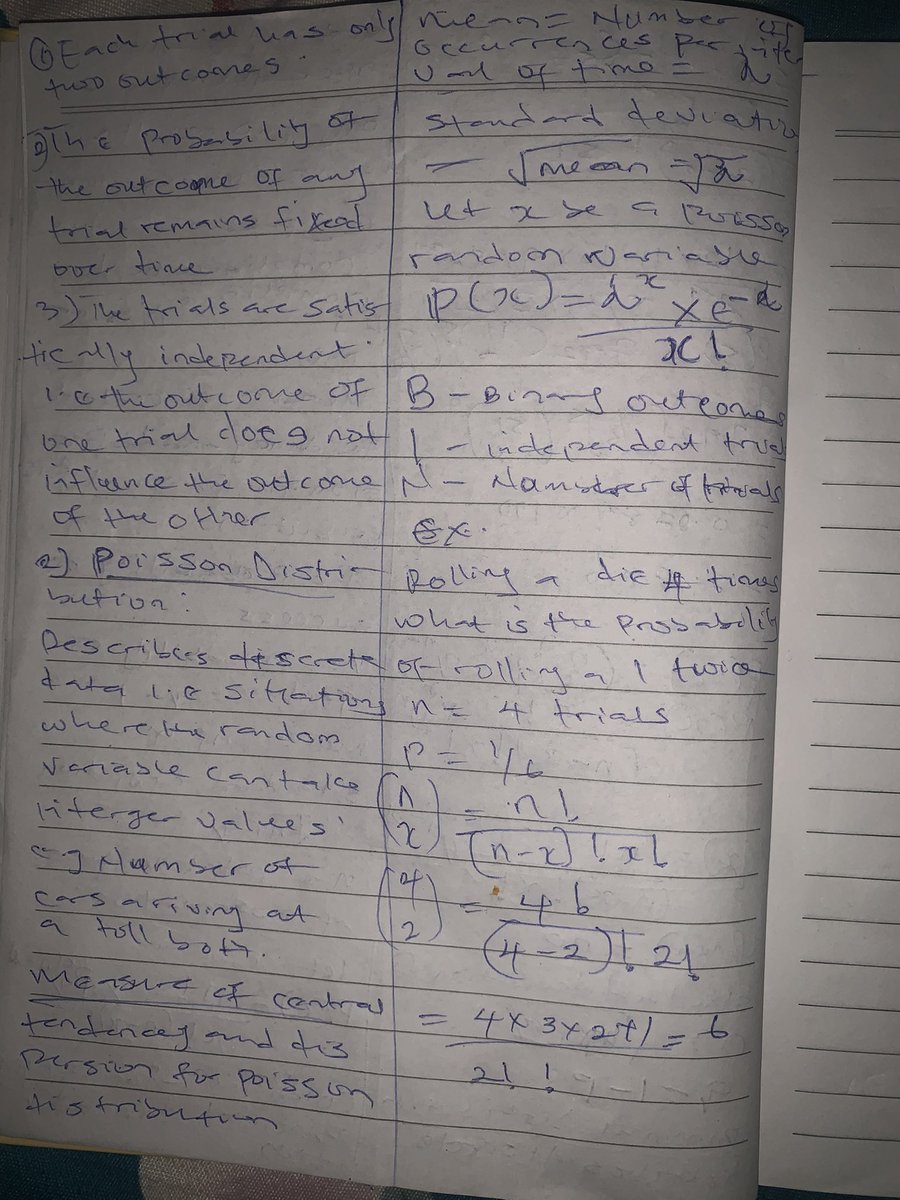 1) Each trial has only
two outcomes.
2) The probability of
the outcome of any
trial remains fixed
over time
3) The trials are satis
tically independent.
i.e the outcome of
one trial does not
influence the outcome
of the other
2). Poisson Distri-
bution:
Describes discrete
data i.e sitiations
where the random
variable can take
interger values.
eg Number of
cars ariving at
a toll both.
measure of central
tendencey and dis
persion for poisson
distribution
mean = Number of
occurrences per inter
val of time = λ
standard deviation
= √mean = √λ
Let x be a Poisson
random variable
P(x) = λ^x × e^-λ
x!
B - Binary outcomes
I - independent trial
N - Number of trials
Ex.
Rolling a die 4 times
what is the probability
of rolling a 1 twice
n = 4 trials
P = 1/6
(n x) = n!
(n-x)! x!
(4 2) = 4!
(4-2)! 2!
= 4 x 3 x 2 x 1 = 6
2! !